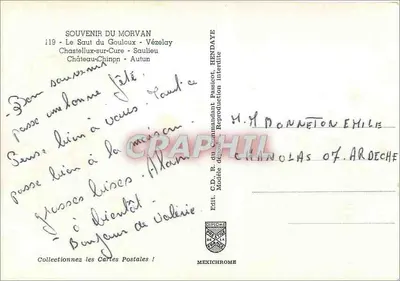 SOUVENIR DU MORVAN
119 - Le Saut du Gouloux - Vézelay
Chastellux-sur-Cure - Saulieu
Château-Chinon - Autun
- Bon souvenir
passe une bonne fête.
Pense bien à vous. Tout ce
passe bien à la maison.
grosses bises. Alain
à bientôt.
- Bonjour de Valérie
Edit. C.D., R. du Commandant Passicot, HENDAYE
Modèle de Reproduction interdite
M. M BONNETON EMILE
CHANOLAS 07. ARDECHE
CRAPHIL
Collectionnez les Cartes Postales !
MEXICHROME